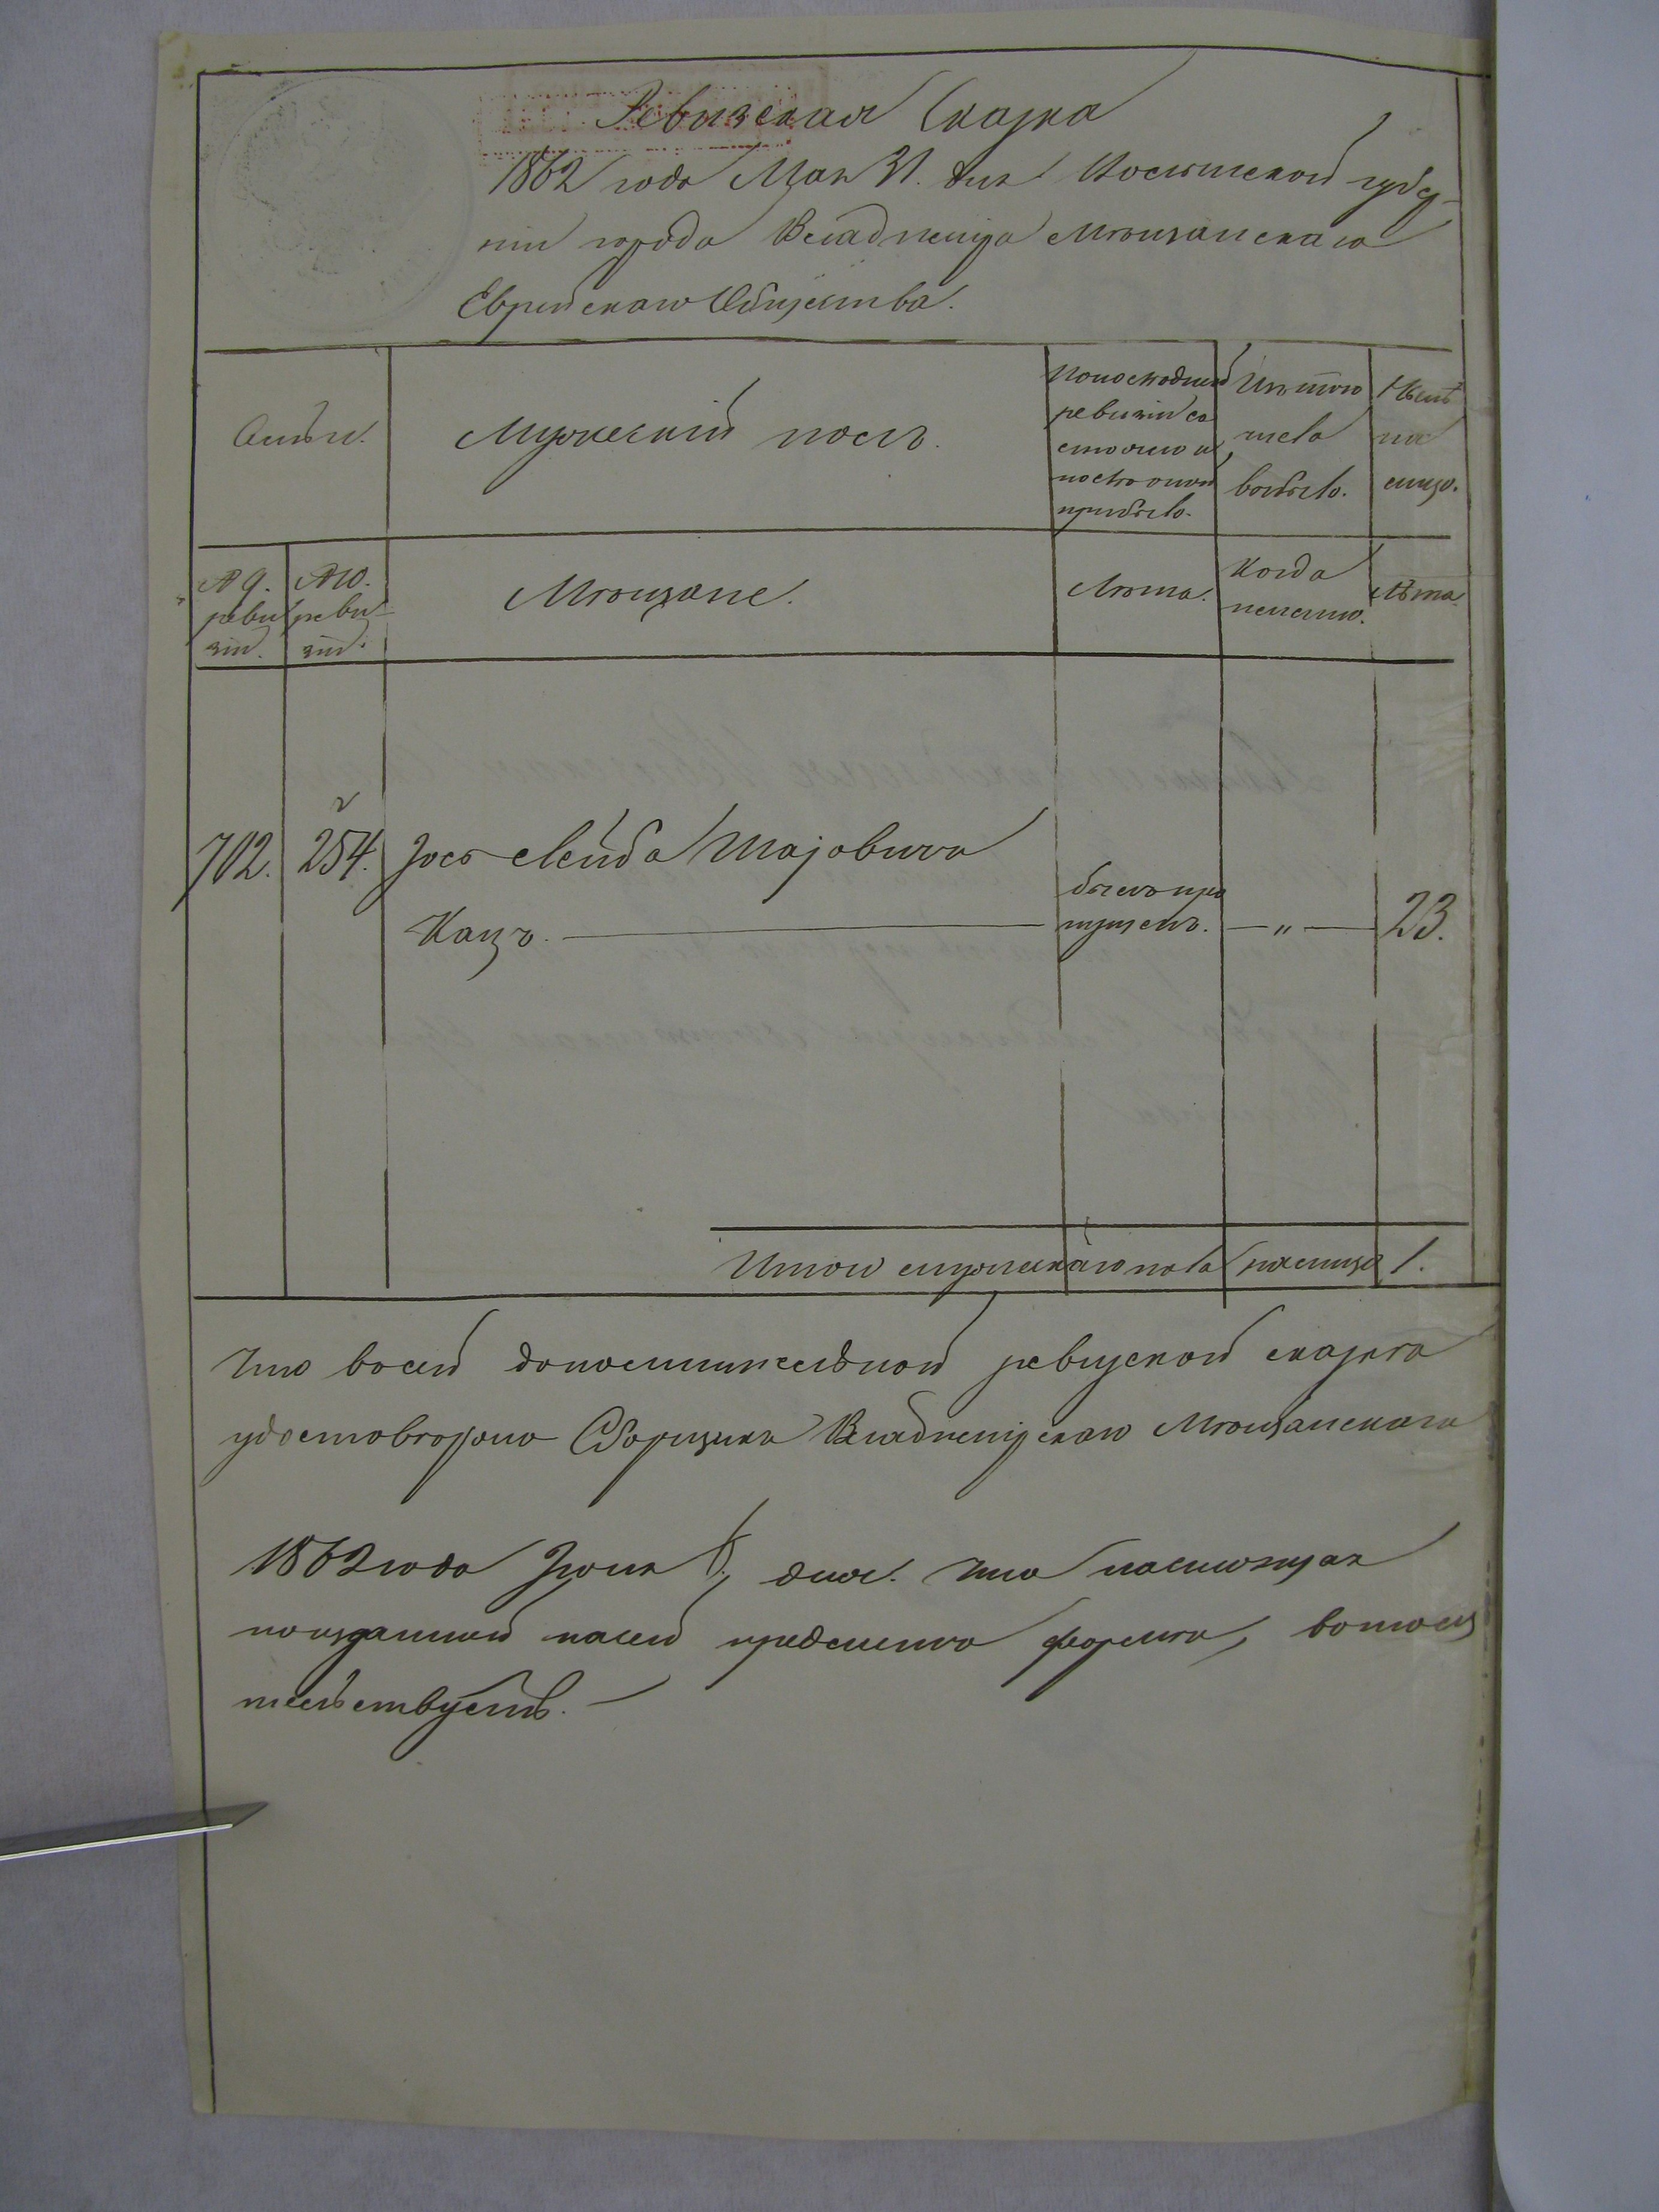 Ревизская Сказка
1862 года Мая 31. дня Волынской губер-
ніи города Владимира Мѣщанскаго
Еврейскаго Общества.
Семьи.
Мужескій полъ.
По последней
ревизіи со
стояло и
послѣ оной
прибыло.
Изъ того
числа
выбыло.
Нынѣ
на
лицо.
№ 9.
реви
зіи.
№ 10.
реви
зіи.
Мѣщане.
Лѣта.
Когда
именно.
Лѣта.
702.
254.
Іось Лейба Шаіовичъ
Кацъ.
былъ про
пущенъ.
— „ —
23.
Итого мужескаго пола на лицо 1.
Что въ сей дополнительной ревизской сказкѣ
удостовѣрено Сборщика Владимирскаго Мѣщанскаго
1862 года Іюня дня. Что настоящая
по изданной на сей предметъ формѣ, въ томъ
тельствуетъ. —